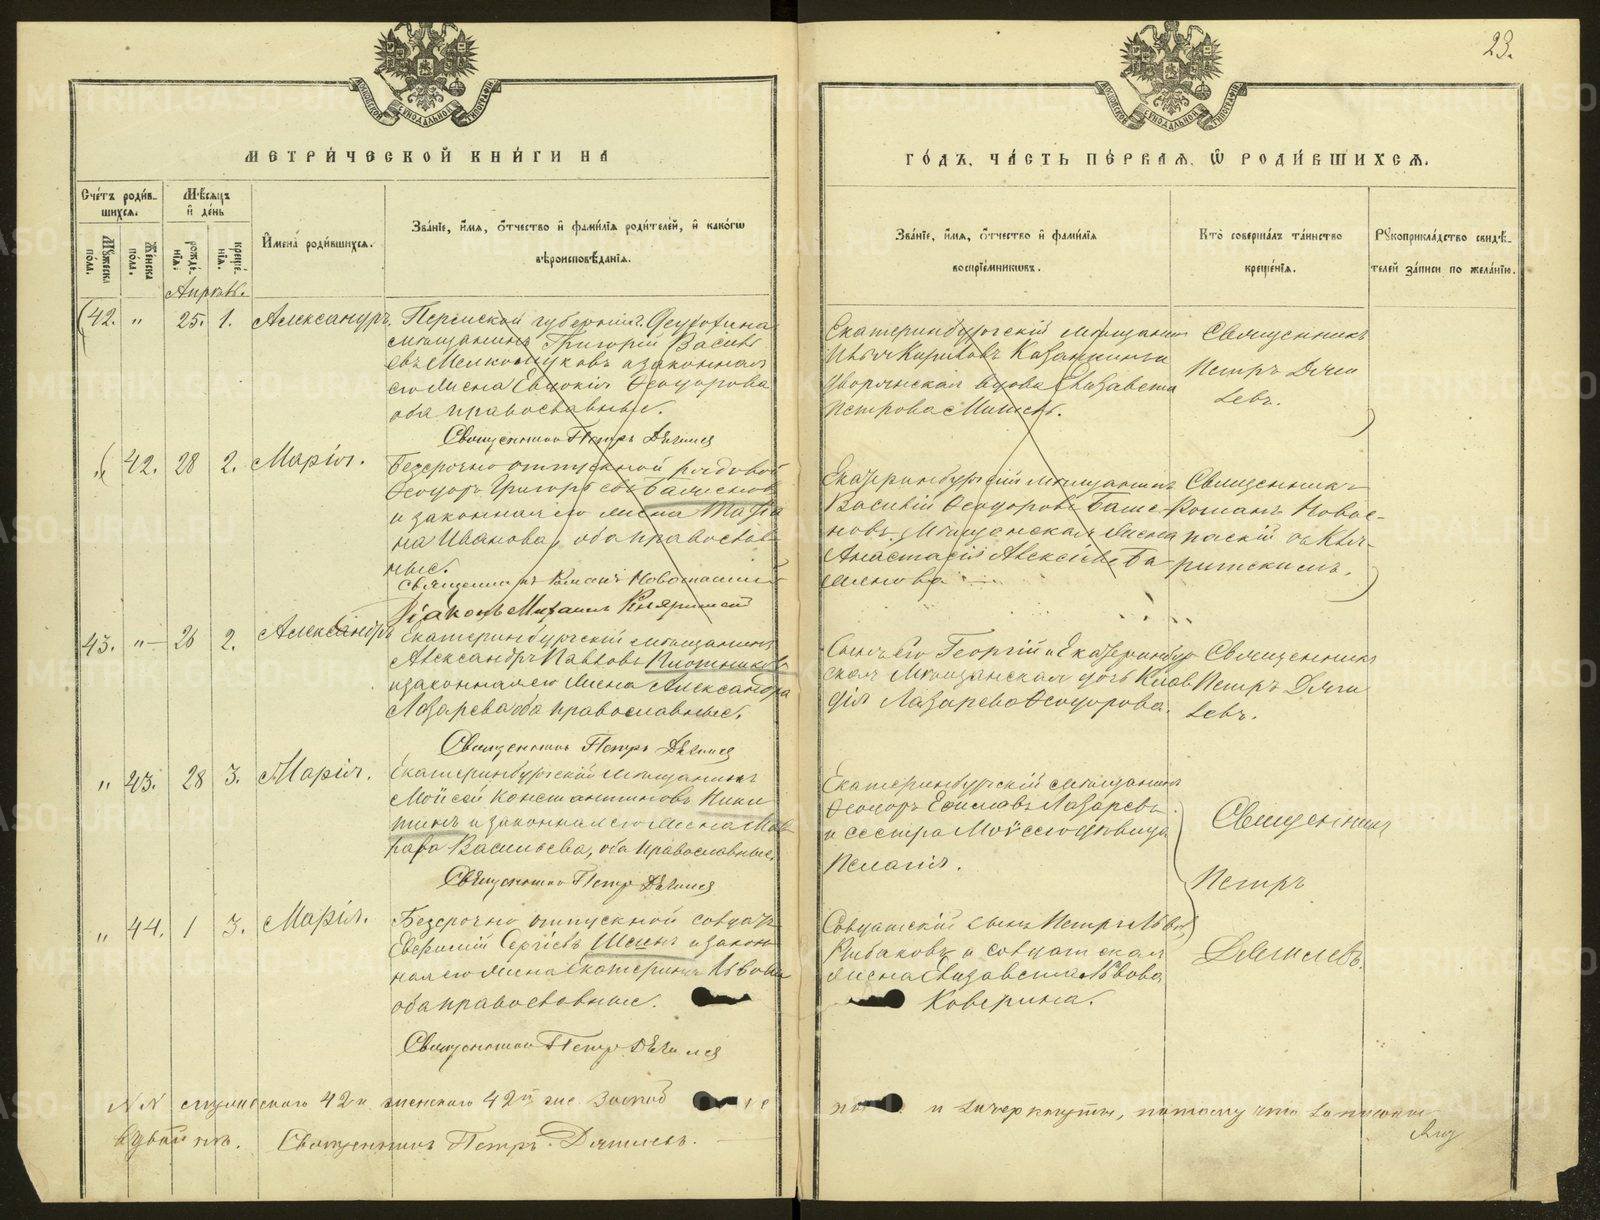 23.
МЕТРИ́ЧЕСКОЙ КНИ́ГИ НА
ГО́ДЪ, ЧА́СТЬ ПЕ́РВАЯ, Ѡ РОДИ́ВШИХСЯ.
Сче́тъ роди́в-
шихся.
Му́жеска
по́ла.
Же́нска
по́ла.
Мѣ́сяцъ
и де́нь
рожде́-
нія.
креще́-
нія.
Имена́ роди́вшихся.
Зва́ніе, и́мя, о́тчество и фами́лія роди́телей, и како́гѡ
вѣроисповѣ́данія.
Зва́ніе, и́мя, о́тчество и фами́лія
воспріе́мникѡвъ.
Кто̀ соверша́лъ та́инство
креще́нія.
Рꙋкоприкла́дство свидѣ́-
телей за́писи по жела́нію.
Апрѣль.
42. " 25. 1. Александръ.
Пермской губерніи
мѣщанинъ Григорій Василь
евъ и законная
его жена Евдокія Ѳеодорова
оба православные.
Священникъ Петръ Дягилев
Екатеринбургскій мѣщанинъ
дворянская вдова Елизавета
Петрова
Священникъ
Петръ Дяги
левъ.
" 42. 28 2. Марія.
Безсрочно отпускной рядовой
Ѳеодоръ Григорьевъ
и законная его жена Татіа
на Иванова, оба православ
ные.
Священникъ Романъ Новоспасскій
Діаконъ Михаилъ
Екатеринбургскій мѣщанинъ
Василій Ѳеодоровъ
мѣщанская жена
Анастасія Алексѣева
Священникъ
Романъ Новос-
паскій
43. " 26 2. Александръ
Екатеринбургскій мѣщанинъ
Александръ Павловъ Плотниковъ
и законная его жена Александра
Лазарева оба православные.
Священникъ Петръ Дягилев
Сынъ его Георгій и Екатеринбург
ская мѣщанская дочь Клав
дія Лазарева Ѳеодорова.
Священникъ
Петръ Дяги
левъ.
" 43. 28 3. Марія.
Екатеринбургскій мѣщанинъ
Мойсей Константиновъ Ники
тинъ и законная его жена Мав
ра Васильева, оба православные.
Священникъ Петръ Дягилев
Екатеринбургскій мѣщанинъ
Ѳеодоръ Лазаревъ
и сестра Мойсея дѣвица
Пелагія.
Священникъ
Петръ
Дягилевъ.
" 44. 1 3. Марія.
Безсрочно отпускной солдатъ
Евфимій Сергѣевъ Шеинъ и закон
ная его жена Екатерина Львова
оба православные.
Священникъ Петръ Дягилев
Солдатскій сынъ Петръ Львовъ
Рыбаковъ и солдатская
жена Елизавета Львова
Коверина.
NN мужескаго 42 и женскаго 42й
и зачеркнуты, потому что записаны
Священникъ Петръ Дягилевъ.